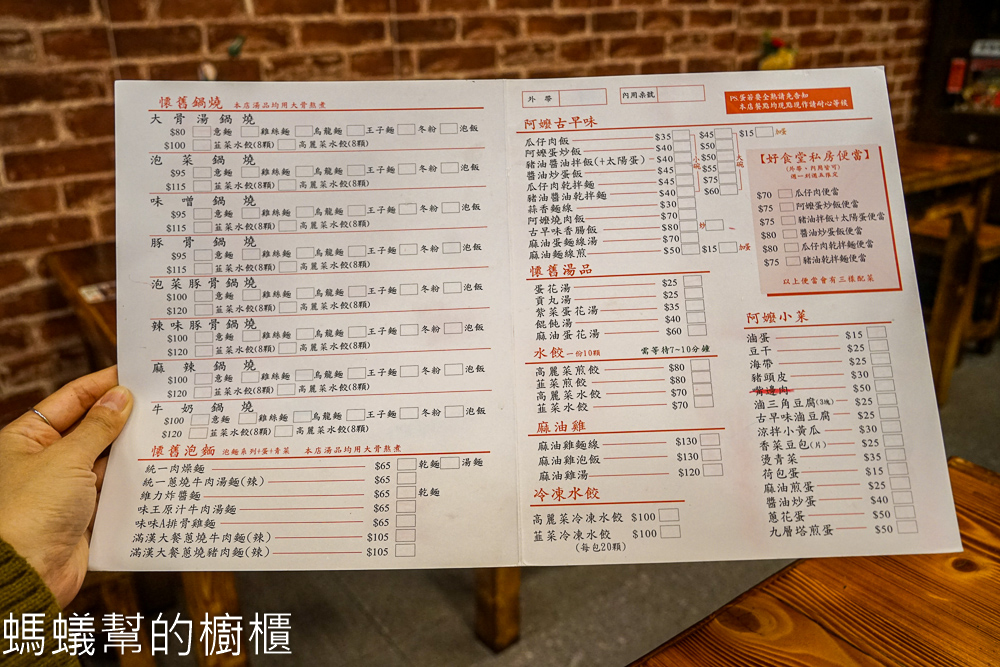 懷舊鍋燒 本店湯品均用大骨熬煮
大骨湯鍋燒
$80 意麵 雞絲麵 烏龍麵 王子麵 冬粉 泡飯
$100 韮菜水餃(8顆) 高麗菜水餃(8顆)
泡菜鍋燒
$95 意麵 雞絲麵 烏龍麵 王子麵 冬粉 泡飯
$115 韮菜水餃(8顆) 高麗菜水餃(8顆)
味噌鍋燒
$95 意麵 雞絲麵 烏龍麵 王子麵 冬粉 泡飯
$115 韮菜水餃(8顆) 高麗菜水餃(8顆)
豚骨鍋燒
$95 意麵 雞絲麵 烏龍麵 王子麵 冬粉 泡飯
$115 韮菜水餃(8顆) 高麗菜水餃(8顆)
泡菜豚骨鍋燒
$100 意麵 雞絲麵 烏龍麵 王子麵 冬粉 泡飯
$120 韮菜水餃(8顆) 高麗菜水餃(8顆)
辣味豚骨鍋燒
$100 意麵 雞絲麵 烏龍麵 王子麵 冬粉 泡飯
$120 韮菜水餃(8顆) 高麗菜水餃(8顆)
麻辣鍋燒
$100 意麵 雞絲麵 烏龍麵 王子麵 冬粉 泡飯
$120 韮菜水餃(8顆) 高麗菜水餃(8顆)
牛奶鍋燒
$100 意麵 雞絲麵 烏龍麵 王子麵 冬粉 泡飯
$120 韮菜水餃(8顆) 高麗菜水餃(8顆)
懷舊泡麵 泡麵系列+蛋+青菜 本店湯品均用大骨熬煮
統一肉燥麵 $65 乾麵 湯麵
統一蔥燒牛肉湯麵(辣) $65
維力炸醬麵 $65 乾麵
味王原汁牛肉湯麵 $65
味味A排骨雞麵 $65
滿漢大餐蔥燒牛肉麵(辣) $105
滿漢大餐蔥燒豬肉麵(辣) $105
外帶 內用桌號
PS.蛋若要全熟請先告知
本店餐點均現點現作請耐心等候
阿嬤古早味
瓜仔肉飯 $35 小碗 $45 大碗 $15 加蛋
阿嬤蛋炒飯 $40 $50
豬油醬油拌飯(+太陽蛋) $40 $50
醬油炒蛋飯 $45 $55
瓜仔肉乾拌麵 $45 $75
豬油醬油乾拌麵 $40 $60
蒜香麵線 $30
阿嬤燒肉飯 $70
古早味香腸飯 $80 炒
麻油蛋麵線湯 $70
麻油麵線煎 $50 $15 加蛋
懷舊湯品
蛋花湯 $25
貢丸湯 $25
紫菜蛋花湯 $35
餛飩湯 $40
麻油蛋花湯 $60
水餃 一份10顆 需等待7~10分鐘
高麗菜煎餃 $80
韮菜煎餃 $80
高麗菜水餃 $70
韮菜水餃 $70
麻油雞
麻油雞麵線 $130
麻油雞泡飯 $130
麻油雞湯 $120
冷凍水餃
高麗菜冷凍水餃 $100
韮菜冷凍水餃 $100
(每包20顆)
【好食堂私房便當】
(外帶、內用皆可)
週一到週五限定
$70 瓜仔肉便當
$75 阿嬤蛋炒飯便當
$75 豬油拌飯+太陽蛋便當
$80 醬油炒蛋飯便當
$80 瓜仔肉乾拌麵便當
$75 豬油乾拌麵便當
以上便當會有三樣配菜
阿嬤小菜
滷蛋 $15
豆干 $25
海帶 $25
豬頭皮 $30
嘴邊肉 $50
滷三角豆腐(3塊) $25
古早味滷豆腐 $25
涼拌小黃瓜 $30
香菜豆包(片) $25
燙青菜 $35
荷包蛋 $15
麻油煎蛋 $25
醬油炒蛋 $40
蔥花蛋 $50
九層塔煎蛋 $50
螞蟻幫的櫥櫃